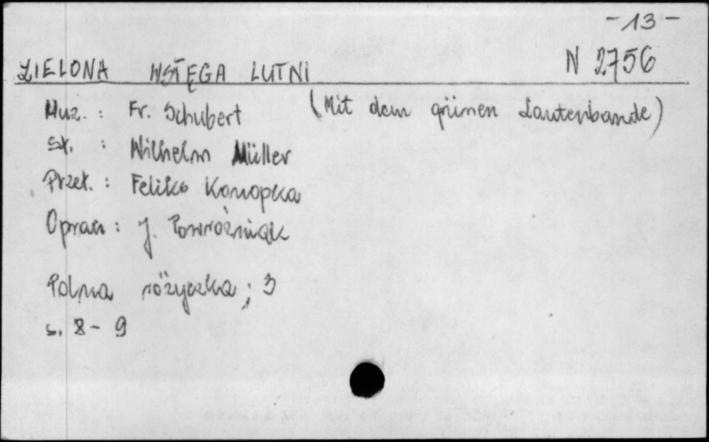 -13-
ZIELONA WSTĘGA LUTNI N 2756
Muz. : Fr. Schubert (Mit dem grünen Lautenbande)
Sł. : Wilhelm Müller
Przekł. : Feliks Konopka
Oprac : J. Powroźniak
Polna różyczka ; 3
s. 8-9